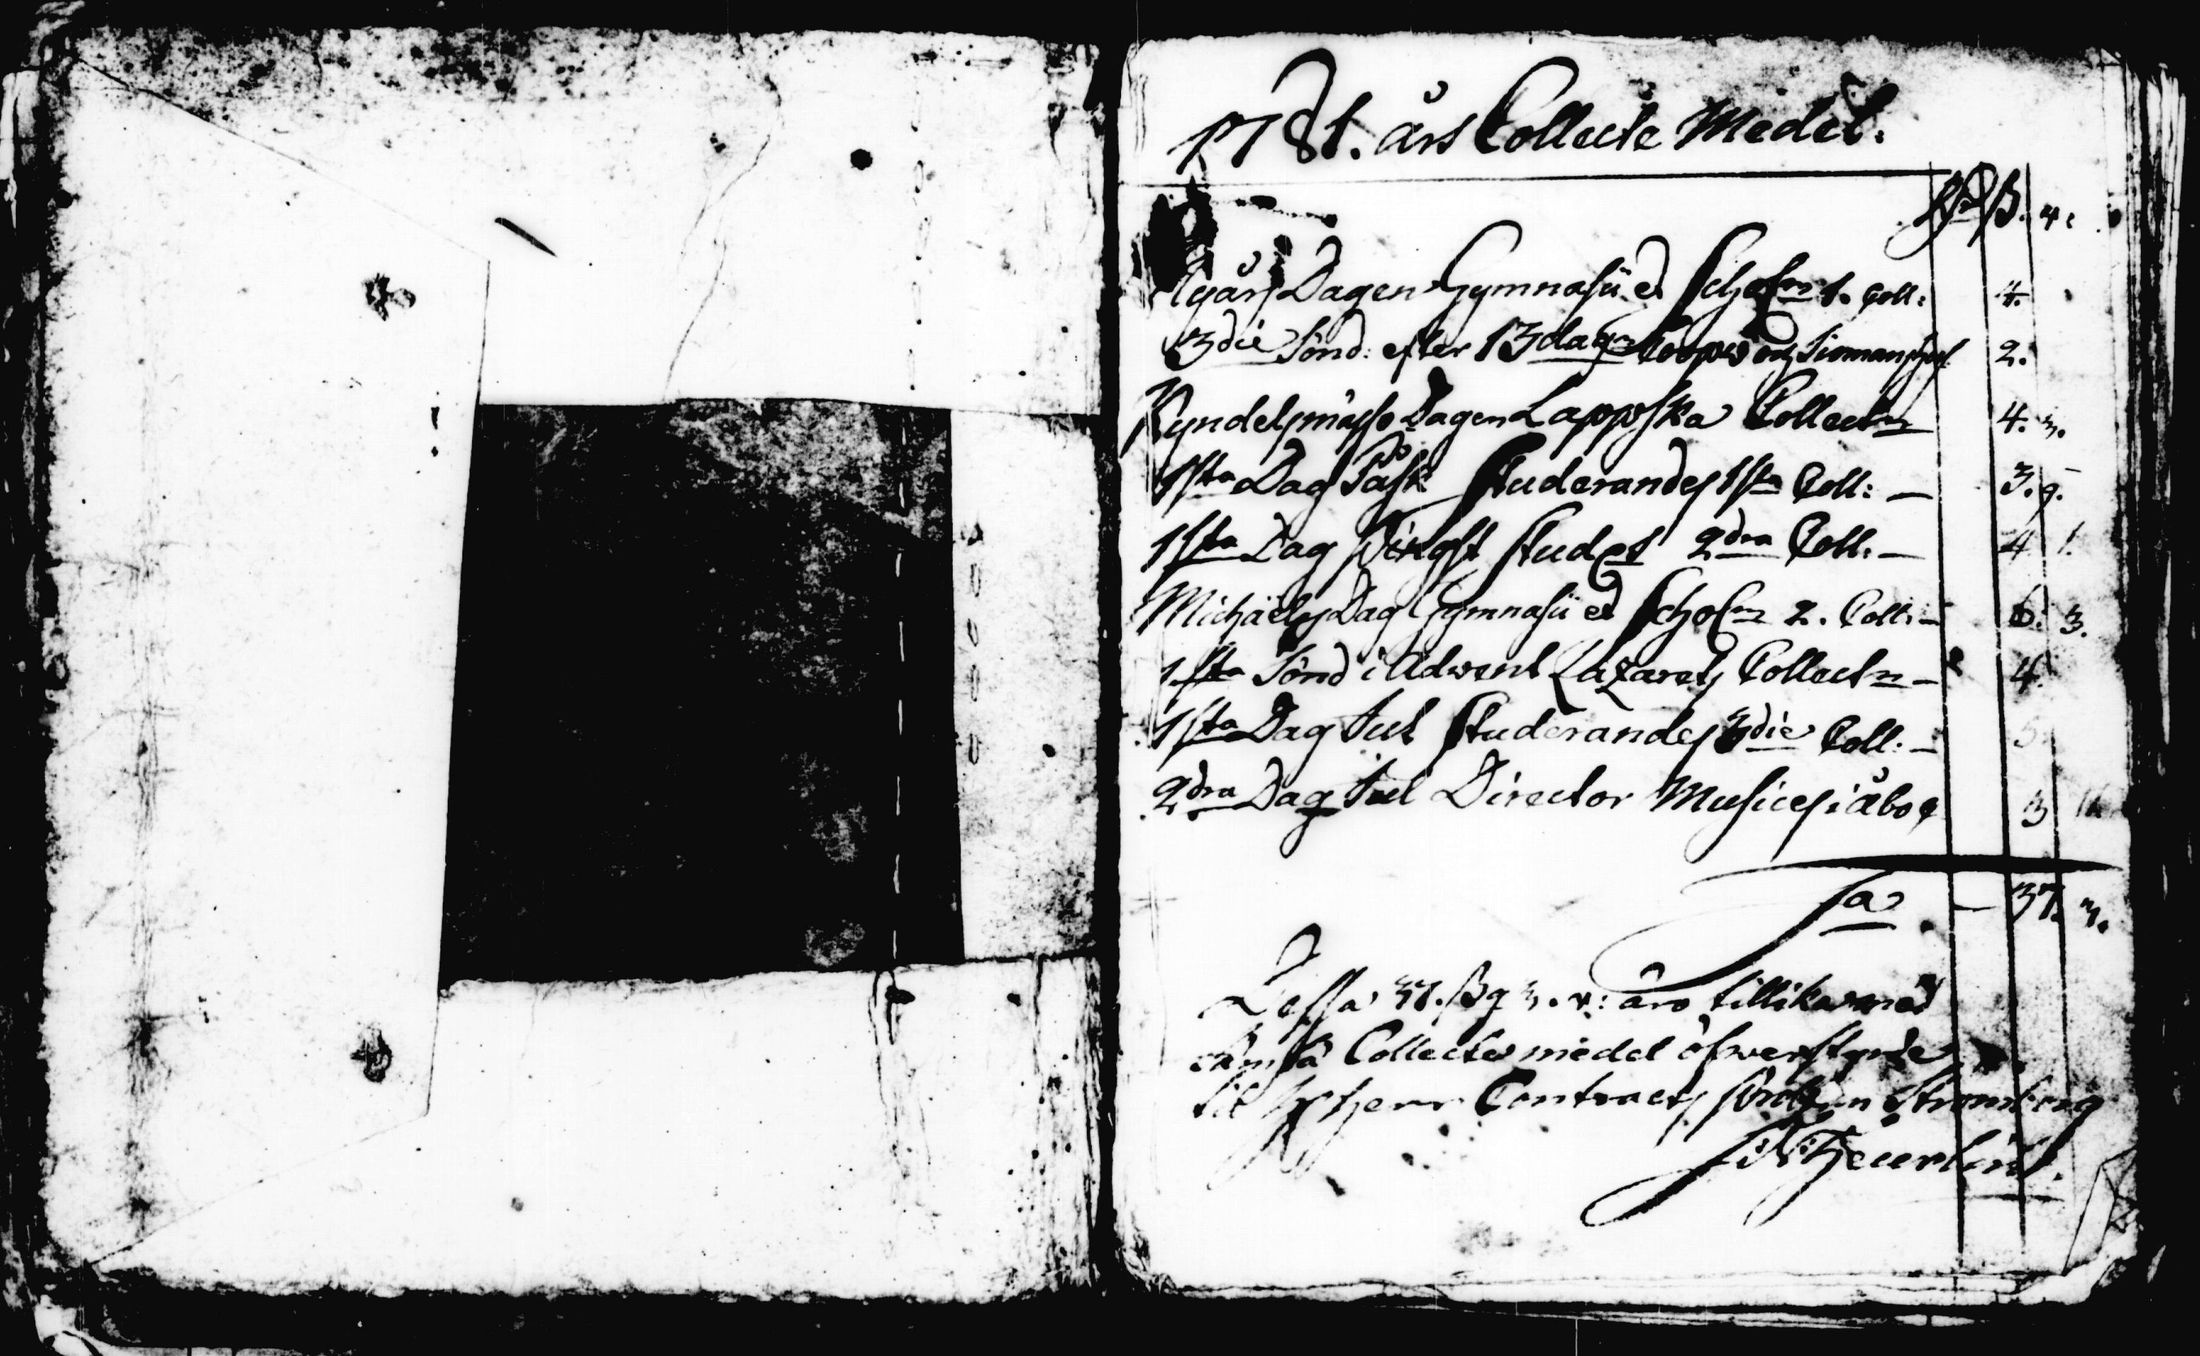 1781. års Collecte Medel.
Rd ß. r:
Nyårs Dagen Gymnasii et Scholrn 1. Coll: 4.
3die Sönd: efter 13dagn och Siömanshus 2.
Kyndelsmässo Dagen Lappska Collectn 4. 3.
1sta Dag Påsk Studerandes 1sta Coll: — 3. 9.
1sta Dag Pingst Studes 2dra Coll: — 4 1.
Michäels Dag Gymnasii et Scholrn 2. Coll: — 6. 3.
1sta Sönd i Advent Lazarets Collectn — 4.
1sta Dag Jul Studerandes 3die Coll: — 5.
2dra Dag Jul Director Musices i Åbo 3 11.
Sa — 37. 3.
Dessa 37. ß 3. r: äro tillika med
Collecte medel öfwerstyrde
til H Herr Contracts Prosten Stromborg
Heurlin.